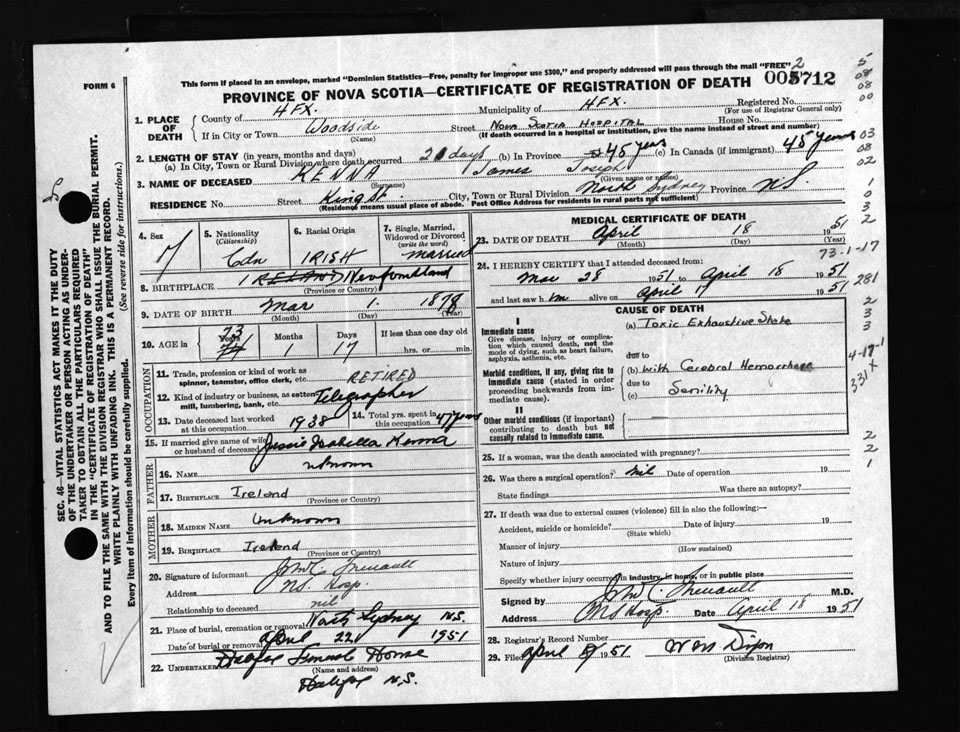 This form if placed in an envelope, marked "Dominion Statistics—Free, penalty for improper use $300," and properly addressed will pass through the mail "FREE"
FORM 6
005712
PROVINCE OF NOVA SCOTIA—CERTIFICATE OF REGISTRATION OF DEATH
1. PLACE OF DEATH
County of HFX. Municipality of HFX. Registered No.
(For use of Registrar General only)
If in City or Town Woodside Street Nova Scotia Hospital House No.
(Name) (If death occurred in a hospital or institution, give the name instead of street and number)
2. LENGTH OF STAY (in years, months and days)
(a) In City, Town or Rural Division where death occurred 21 days (b) In Province 45 years (c) In Canada (if immigrant) 45 years
3. NAME OF DECEASED KENNA James Joseph
(Surname) (Given name or names)
RESIDENCE No. Street King St. City, Town or Rural Division North Sydney Province N.S.
(Residence means usual place of abode. Post Office Address for residents in rural parts not sufficient)
4. Sex M
5. Nationality (Citizenship) Cdn
6. Racial Origin IRISH
7. Single, Married, Widowed or Divorced (write the word) married
8. BIRTHPLACE IRELAND Newfoundland
(Province or Country)
9. DATE OF BIRTH Mar 1 1878
(Month) (Day) (Year)
10. AGE in 73 Years Months 1 Days 17 If less than one day old
hrs. or min.
OCCUPATION
11. Trade, profession or kind of work as spinner, teamster, office clerk, etc. RETIRED
12. Kind of industry or business, as cotton mill, lumbering, bank, etc. Telegrapher
13. Date deceased last worked at this occupation 1938
14. Total yrs. spent in this occupation 47 years
15. If married give name of wife or husband of deceased Jessie Isabella Kenna
FATHER
16. NAME unknown
17. BIRTHPLACE Ireland
(Province or Country)
MOTHER
18. MAIDEN NAME Unknown
19. BIRTHPLACE Ireland
(Province or Country)
20. Signature of informant
Address N.S. Hosp.
Relationship to deceased nil
21. Place of burial, cremation or removal North Sydney N.S.
Date of burial or removal April 22 1951
22. UNDERTAKER Halifax Funeral Home
(Name and address)
Halifax N.S.
MEDICAL CERTIFICATE OF DEATH
23. DATE OF DEATH April 18 1951
(Month) (Day) (Year)
73-1-17
24. I HEREBY CERTIFY that I attended deceased from:
Mar 28 1951 to April 18 1951
and last saw him alive on April 17 1951
CAUSE OF DEATH
I
Immediate cause
Give disease, injury or complication which caused death, not the mode of dying, such as heart failure, asphyxia, asthenia, etc.
(a) Toxic Exhaustive State
due to
Morbid conditions, if any, giving rise to immediate cause (stated in order proceeding backwards from immediate cause).
(b) with Cerebral Hemorrhage
due to
(c) Senility
II
Other morbid conditions (if important) contributing to death but not causally related to immediate cause.
25. If a woman, was the death associated with pregnancy?
26. Was there a surgical operation? nil Date of operation 19
State findings Was there an autopsy?
27. If death was due to external causes (violence) fill in also the following:—
Accident, suicide or homicide? Date of injury 19
(State which)
Manner of injury
(How sustained)
Nature of injury
Specify whether injury occurred in industry, in home, or in public place
Signed by M.D.
Address N.S. Hosp. Date April 18 1951
28. Registrar's Record Number
29. Filed April 1951
(Division Registrar)
SEC. 46—VITAL STATISTICS ACT MAKES IT THE DUTY
OF THE UNDERTAKER OR PERSON ACTING AS UNDER-
TAKER TO OBTAIN ALL THE PARTICULARS REQUIRED
IN THE "CERTIFICATE OF REGISTRATION OF DEATH"
AND TO FILE THE SAME WITH THE DIVISION REGISTRAR WHO SHALL ISSUE THE BURIAL PERMIT.
WRITE PLAINLY WITH UNFADING INK. THIS IS A PERMANENT RECORD.
Every item of information should be carefully supplied. (See reverse side for instructions.)
2
5
08
08
00
03
08
02
1
0
3
2
281
2
3
3
4-17-1
331X
2
2
1